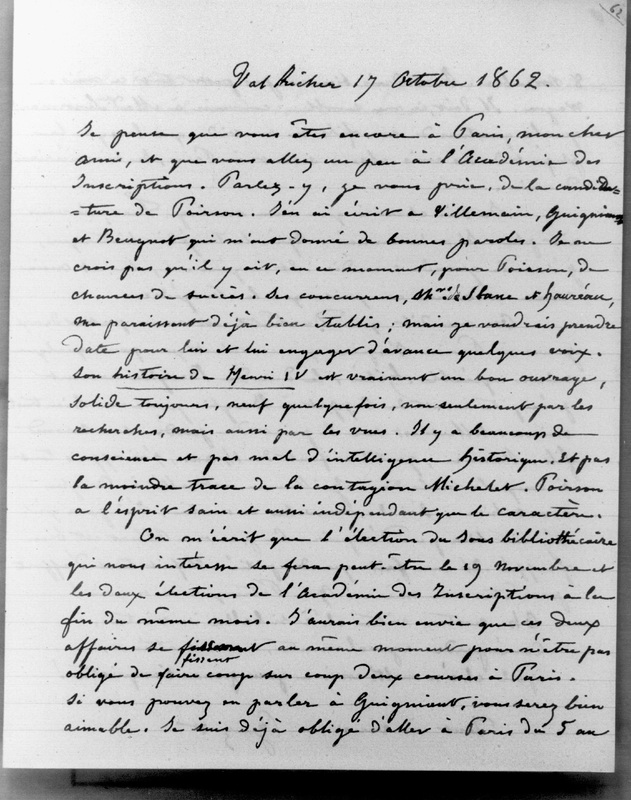 62
Val Richer 17 Octobre 1862.
Je pense que vous êtes encore à Paris, mon cher
ami, et que vous allez un peu à l'Académie des
Inscriptions. Parlez-y, je vous prie, de la candida-
=ture de Poirson. J'en ai écrit à Villemain, Guigniaut
et Beugnot qui m'ont donné de bonnes paroles. Je ne
crois pas qu'il y ait, en ce moment, pour Poirson, de
chances de succès. Ses concurrens, MMrs de Slane et hauréau,
me paraissent déjà bien établis; mais je voudrais prendre
date pour lui et lui engager d'avance quelques voix.
Son histoire de Henri IV est vraiment un bon ouvrage,
solide toujours, neuf quelquefois, non seulement par les
recherches, mais aussi par les vues. Il y a beaucoup de
conscience et pas mal d'intelligence historique. Et pas
la moindre trace de la contagion Michelet. Poirson
a l'esprit sain et aussi indépendant que le caractère.
On m'écrit que l'élection du sous bibliothécaire
qui nous intéresse se fera peut-être le 19 novembre et
les deux élections de l'Académie des Inscriptions à la
fin du même mois. J'aurais bien envie que ces deux
affaires se fissent au même moment pour n'être pas
fissent
obligé de faire coup sur coup deux courses à Paris.
Si vous pouvez en parler à Guigniaut, vous serez bien
aimable. Je suis déjà obligé d'aller à Paris du 5 au